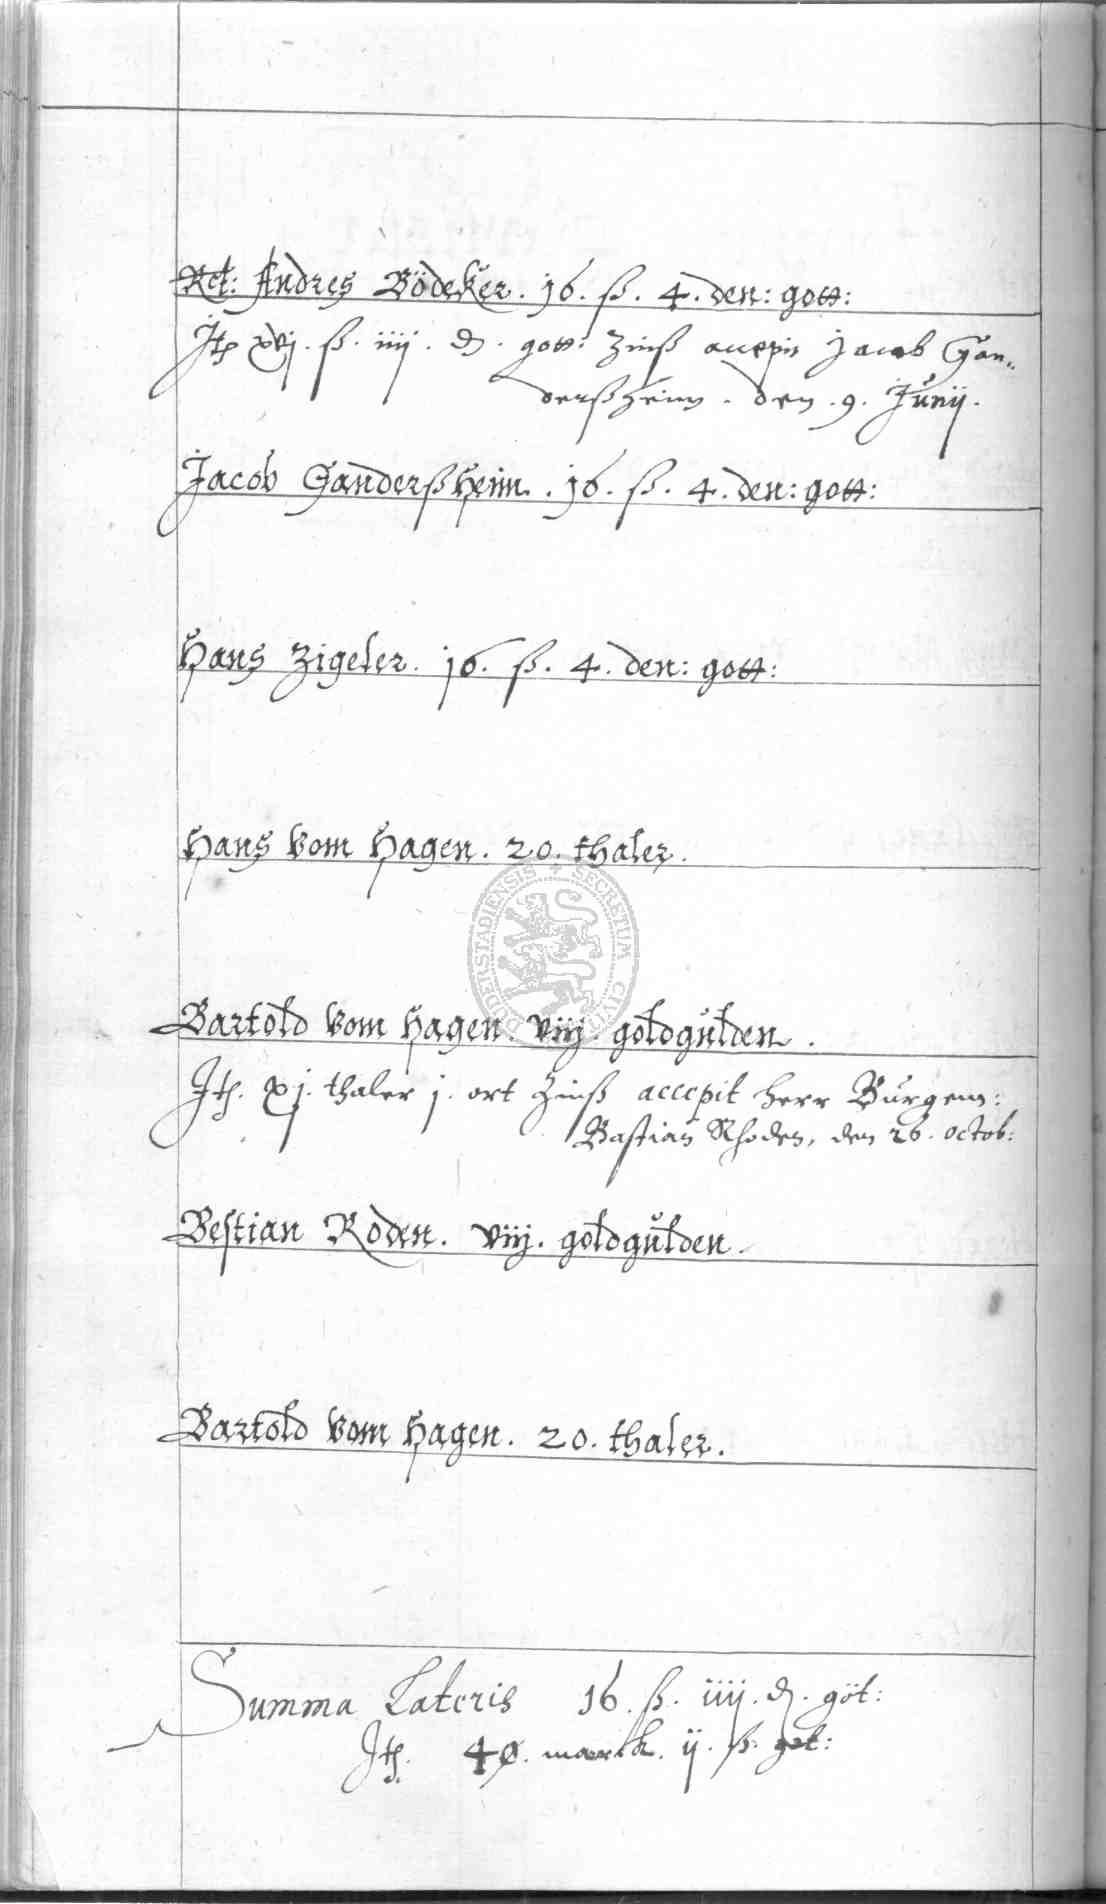 Rct: Andres Bödeker. 16. ß. 4. den: gott:
Jtem xvj. ß. iiij. d. gott: Zinß accepit Jacob Gan„
derßheim. den. 9. Junij.
Jacob Ganderßheim. 16. ß. 4. den: gott:
Hans Zigeler. 16. ß. 4. den: gott:
Hans vom Hagen. 20. thaler.
DUDERSTADIENSIS + SECRETUM CIVIT
Bartold vom Hagen. viij. goldgulden.
Jtem. xj. thaler j. ort Zinß accepit herr Burgem:
Bastian Rhoden, den 26. octob:
Bestian Roden. viij. goldgulden.
Bartold vom Hagen. 20. thaler.
Summa Lateris 16. ß. iiij. d. göt:
Jtem. marck. ij. ß. got: